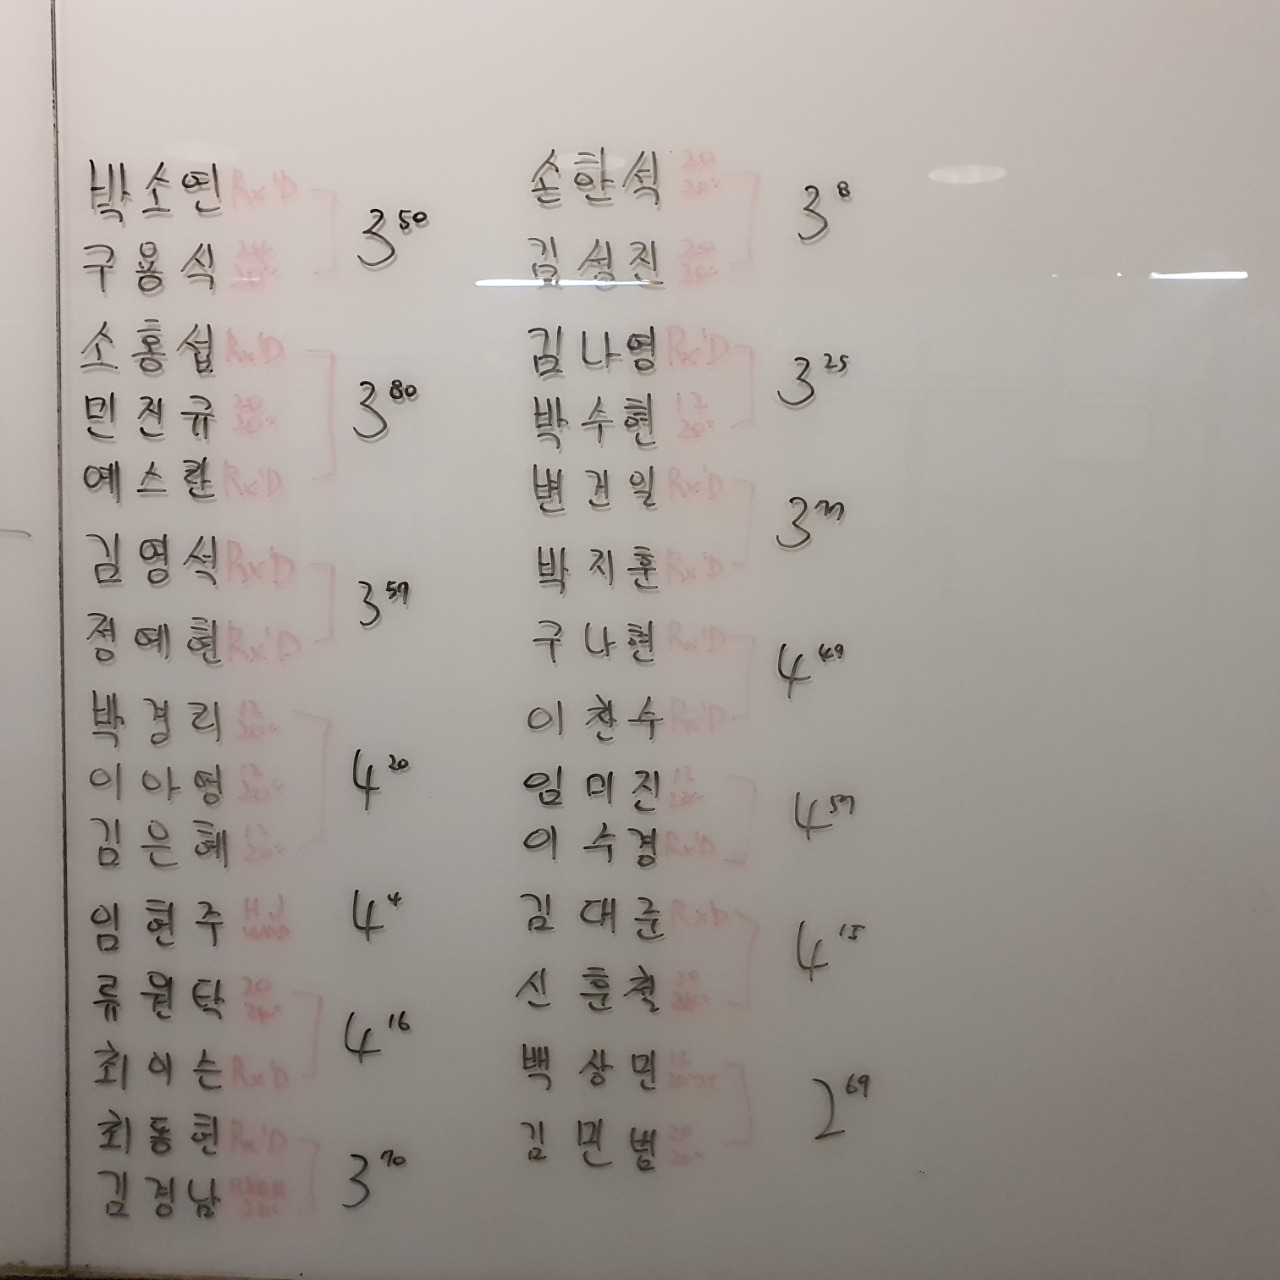 박소연 Rx'D
구용식
3 50
소홍섭 Rx'D
민진규 20 20"
예스란 Rx'D
3 80
김영석 Rx'D
정예현 Rx'D
3 57
박경리 12 20"
이아영 12 20"
김은혜 12 20"
4 20
임현주 HJ WOD
4 4
류원탁 20 24"
최이슨 Rx'D
4 16
최동훤 Rx'D
김경남
3 70
손한석
김성진
3 8
김나영 Rx'D
박수현 12 20"
3 25
변건일 Rx'D
박지훈 Rx'D
3
구나현 Rx'D
이찬수 Rx'D
4 49
임미진 12
이수경 Rx'D
4 57
김대준 RxD
신훈철
4 15
백상민 12
김민범 20 20"
2 69